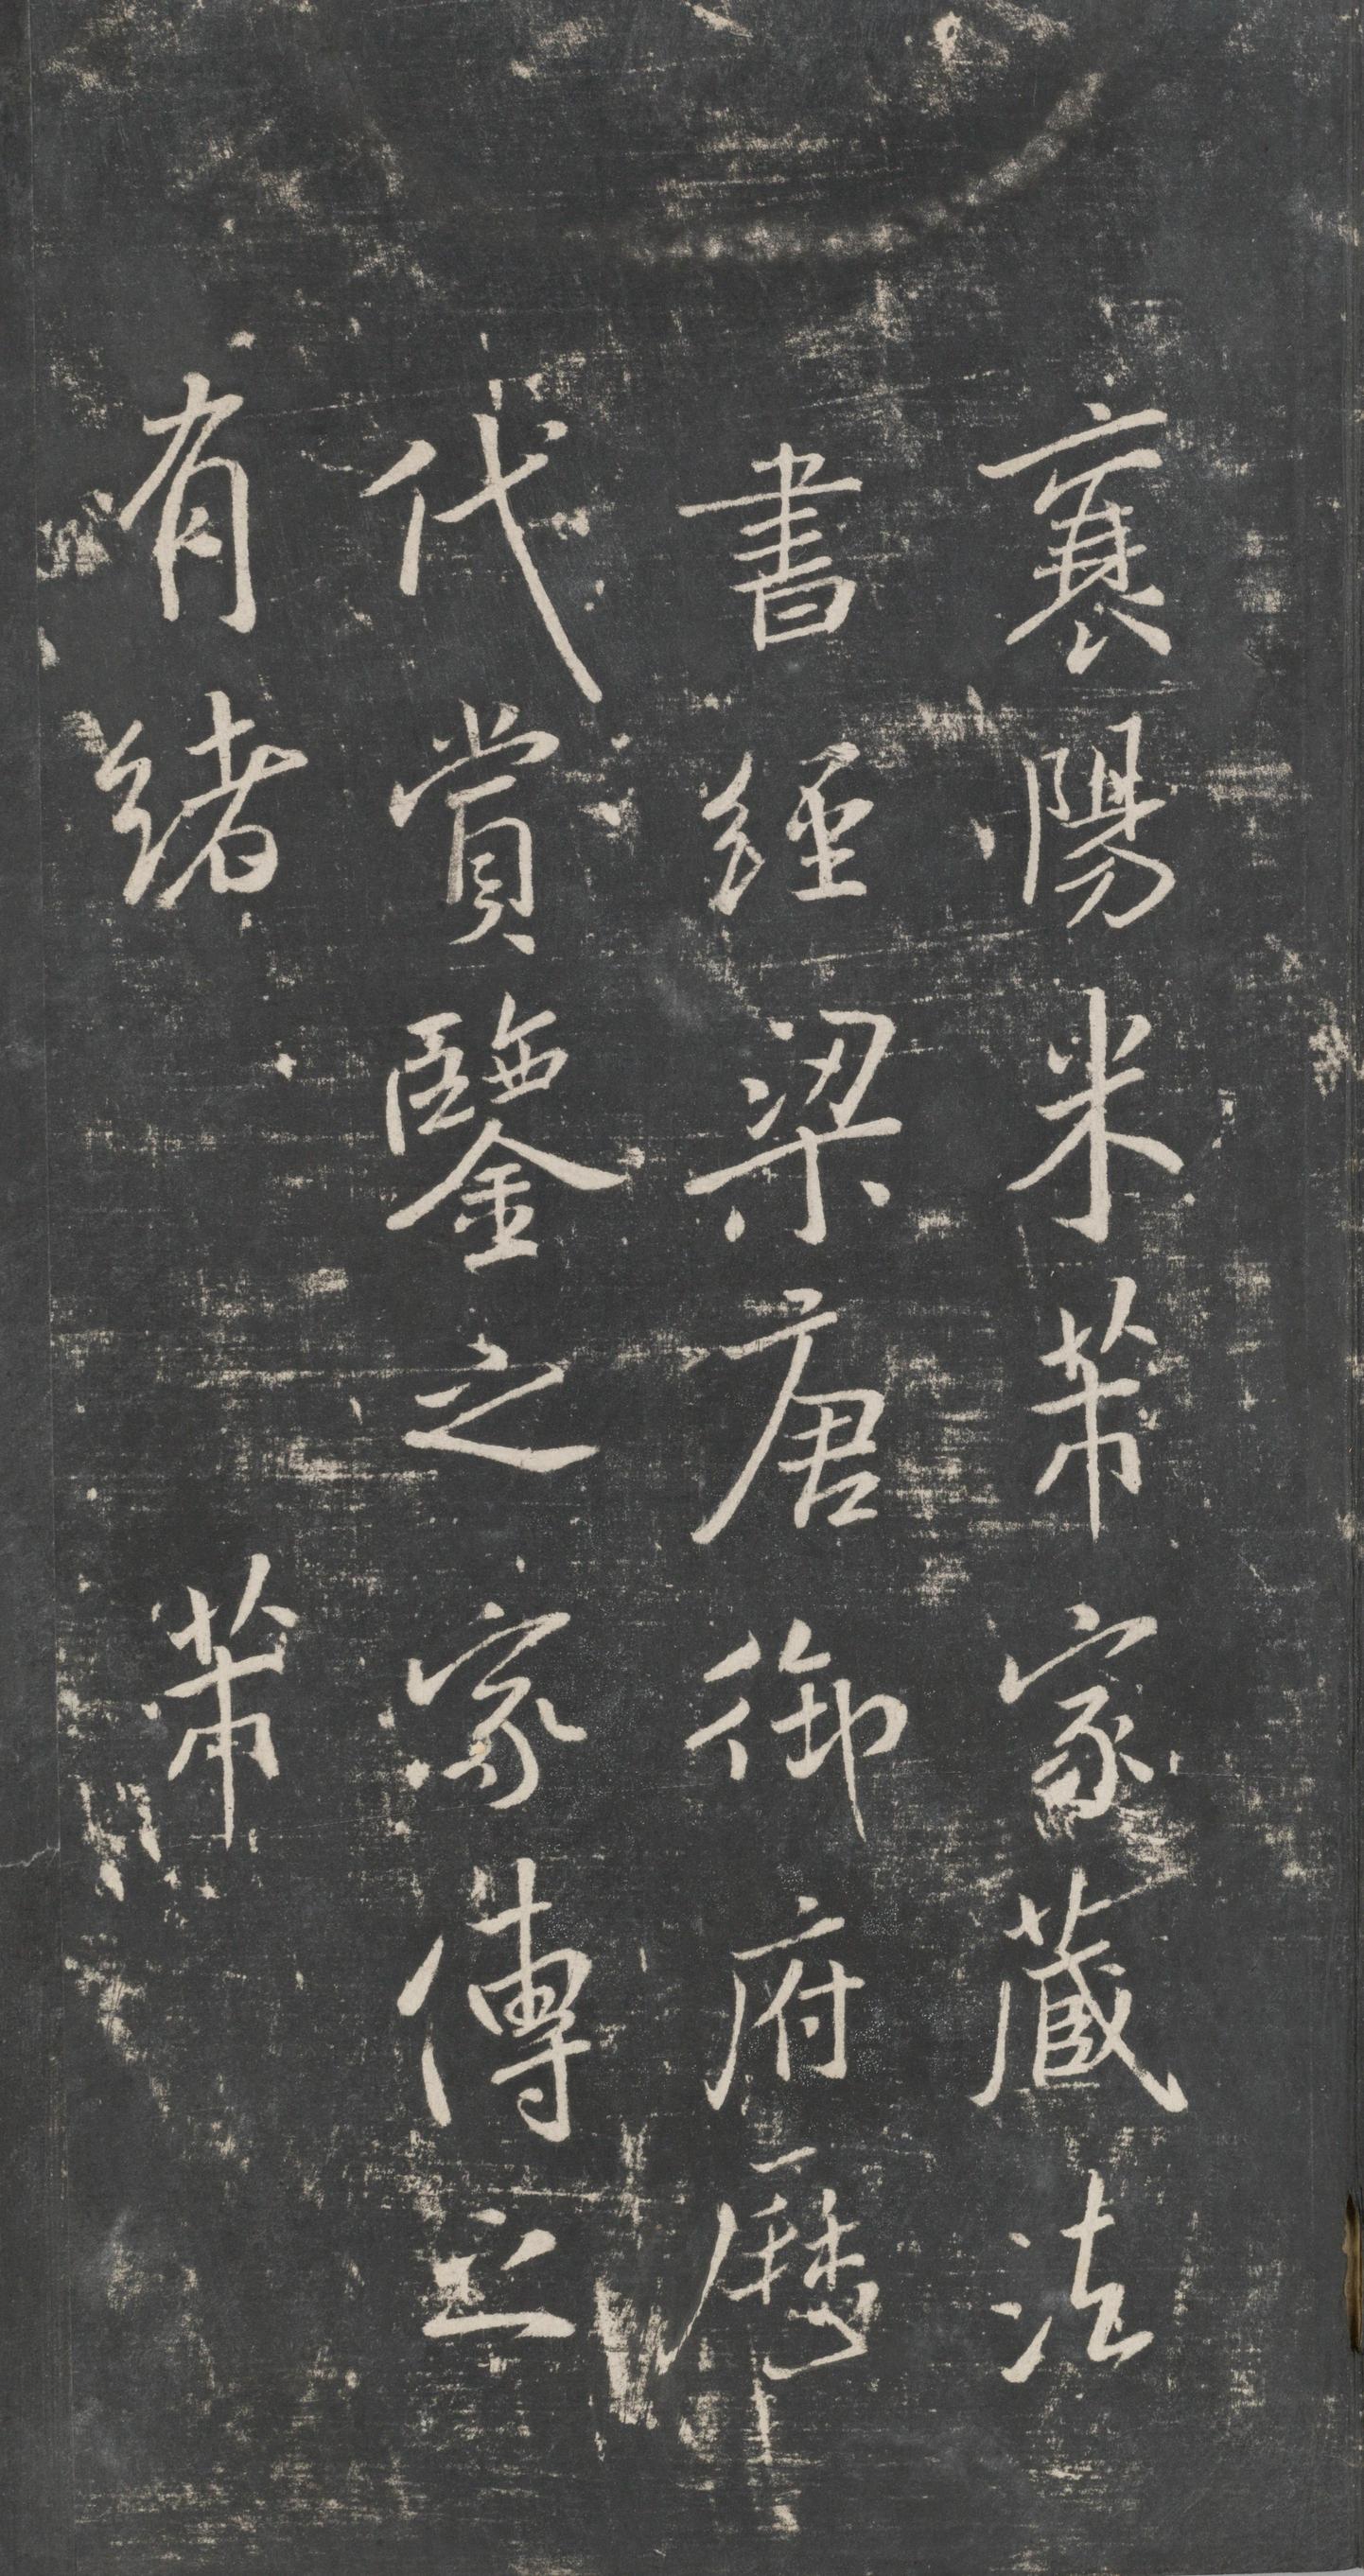 襄陽米芾家藏法
書經梁唐御府歷
代賞鑒之家傳之
有緒　芾